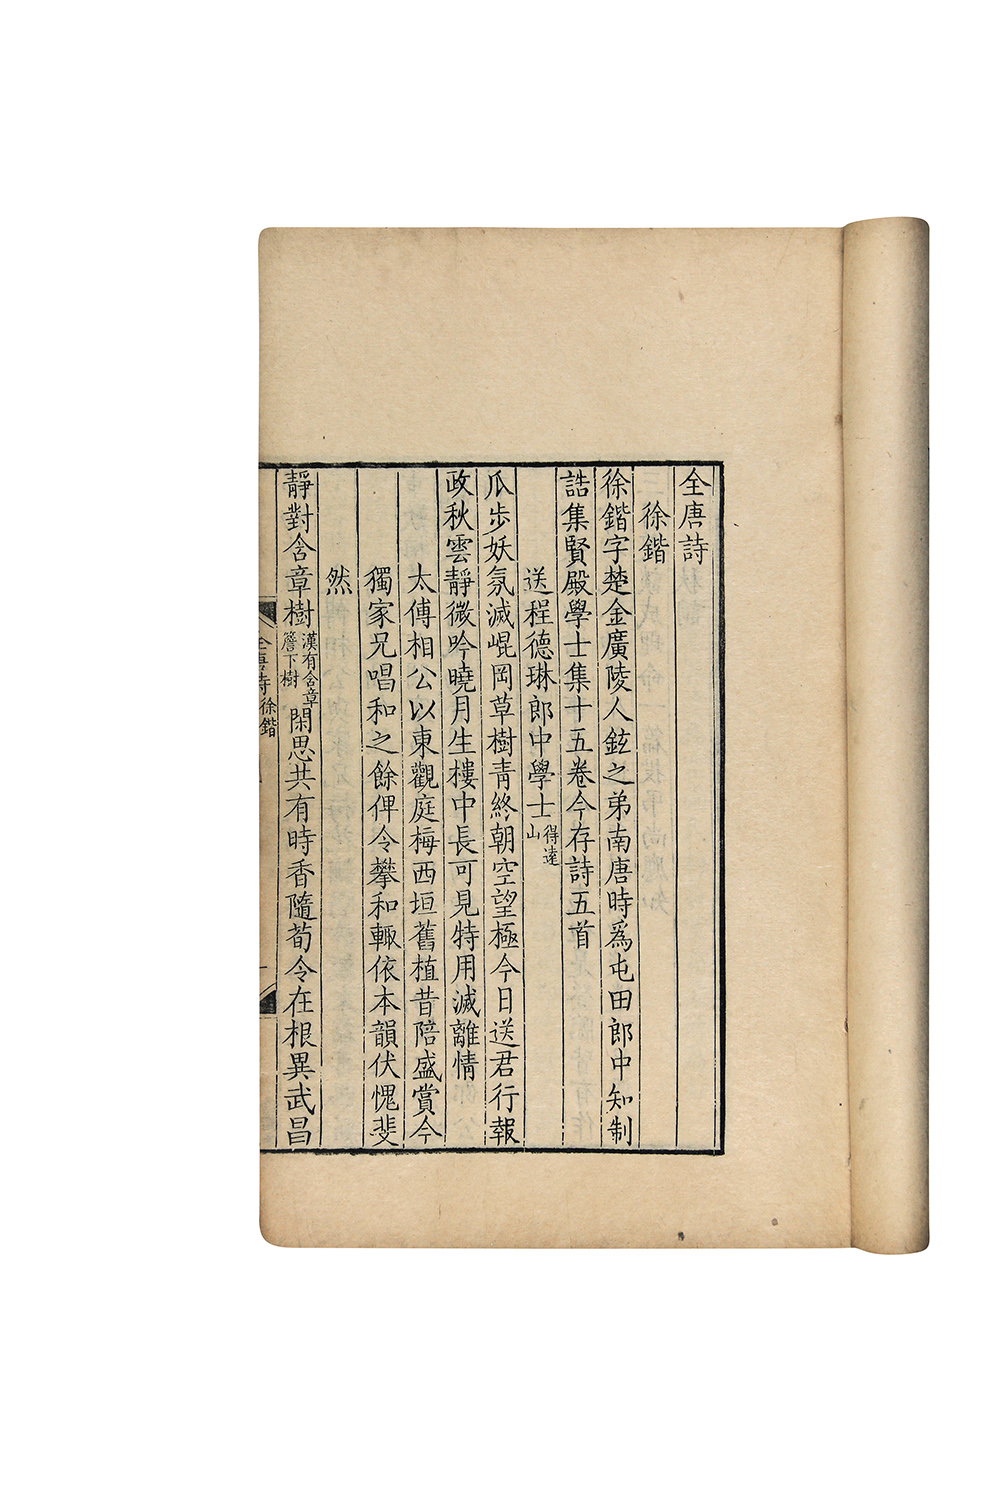 全唐詩
徐鍇
徐鍇字楚金廣陵人鉉之弟南唐時爲屯田郎中知制
誥集賢殿學士集十五卷今存詩五首
送程德琳郎中學士得達山
瓜步妖氛滅崐岡草樹青終朝空望極今日送君行報
政秋雲靜微吟曉月生樓中長可見特用滅離情
太傅相公以東觀庭梅西垣舊植昔陪盛賞今
獨家兄唱和之餘俾令攀和輒依本韻伏愧斐
然
靜對含章樹漢有含章簷下樹閑思共有時香隨荀令在根異武昌
全唐詩 徐鍇